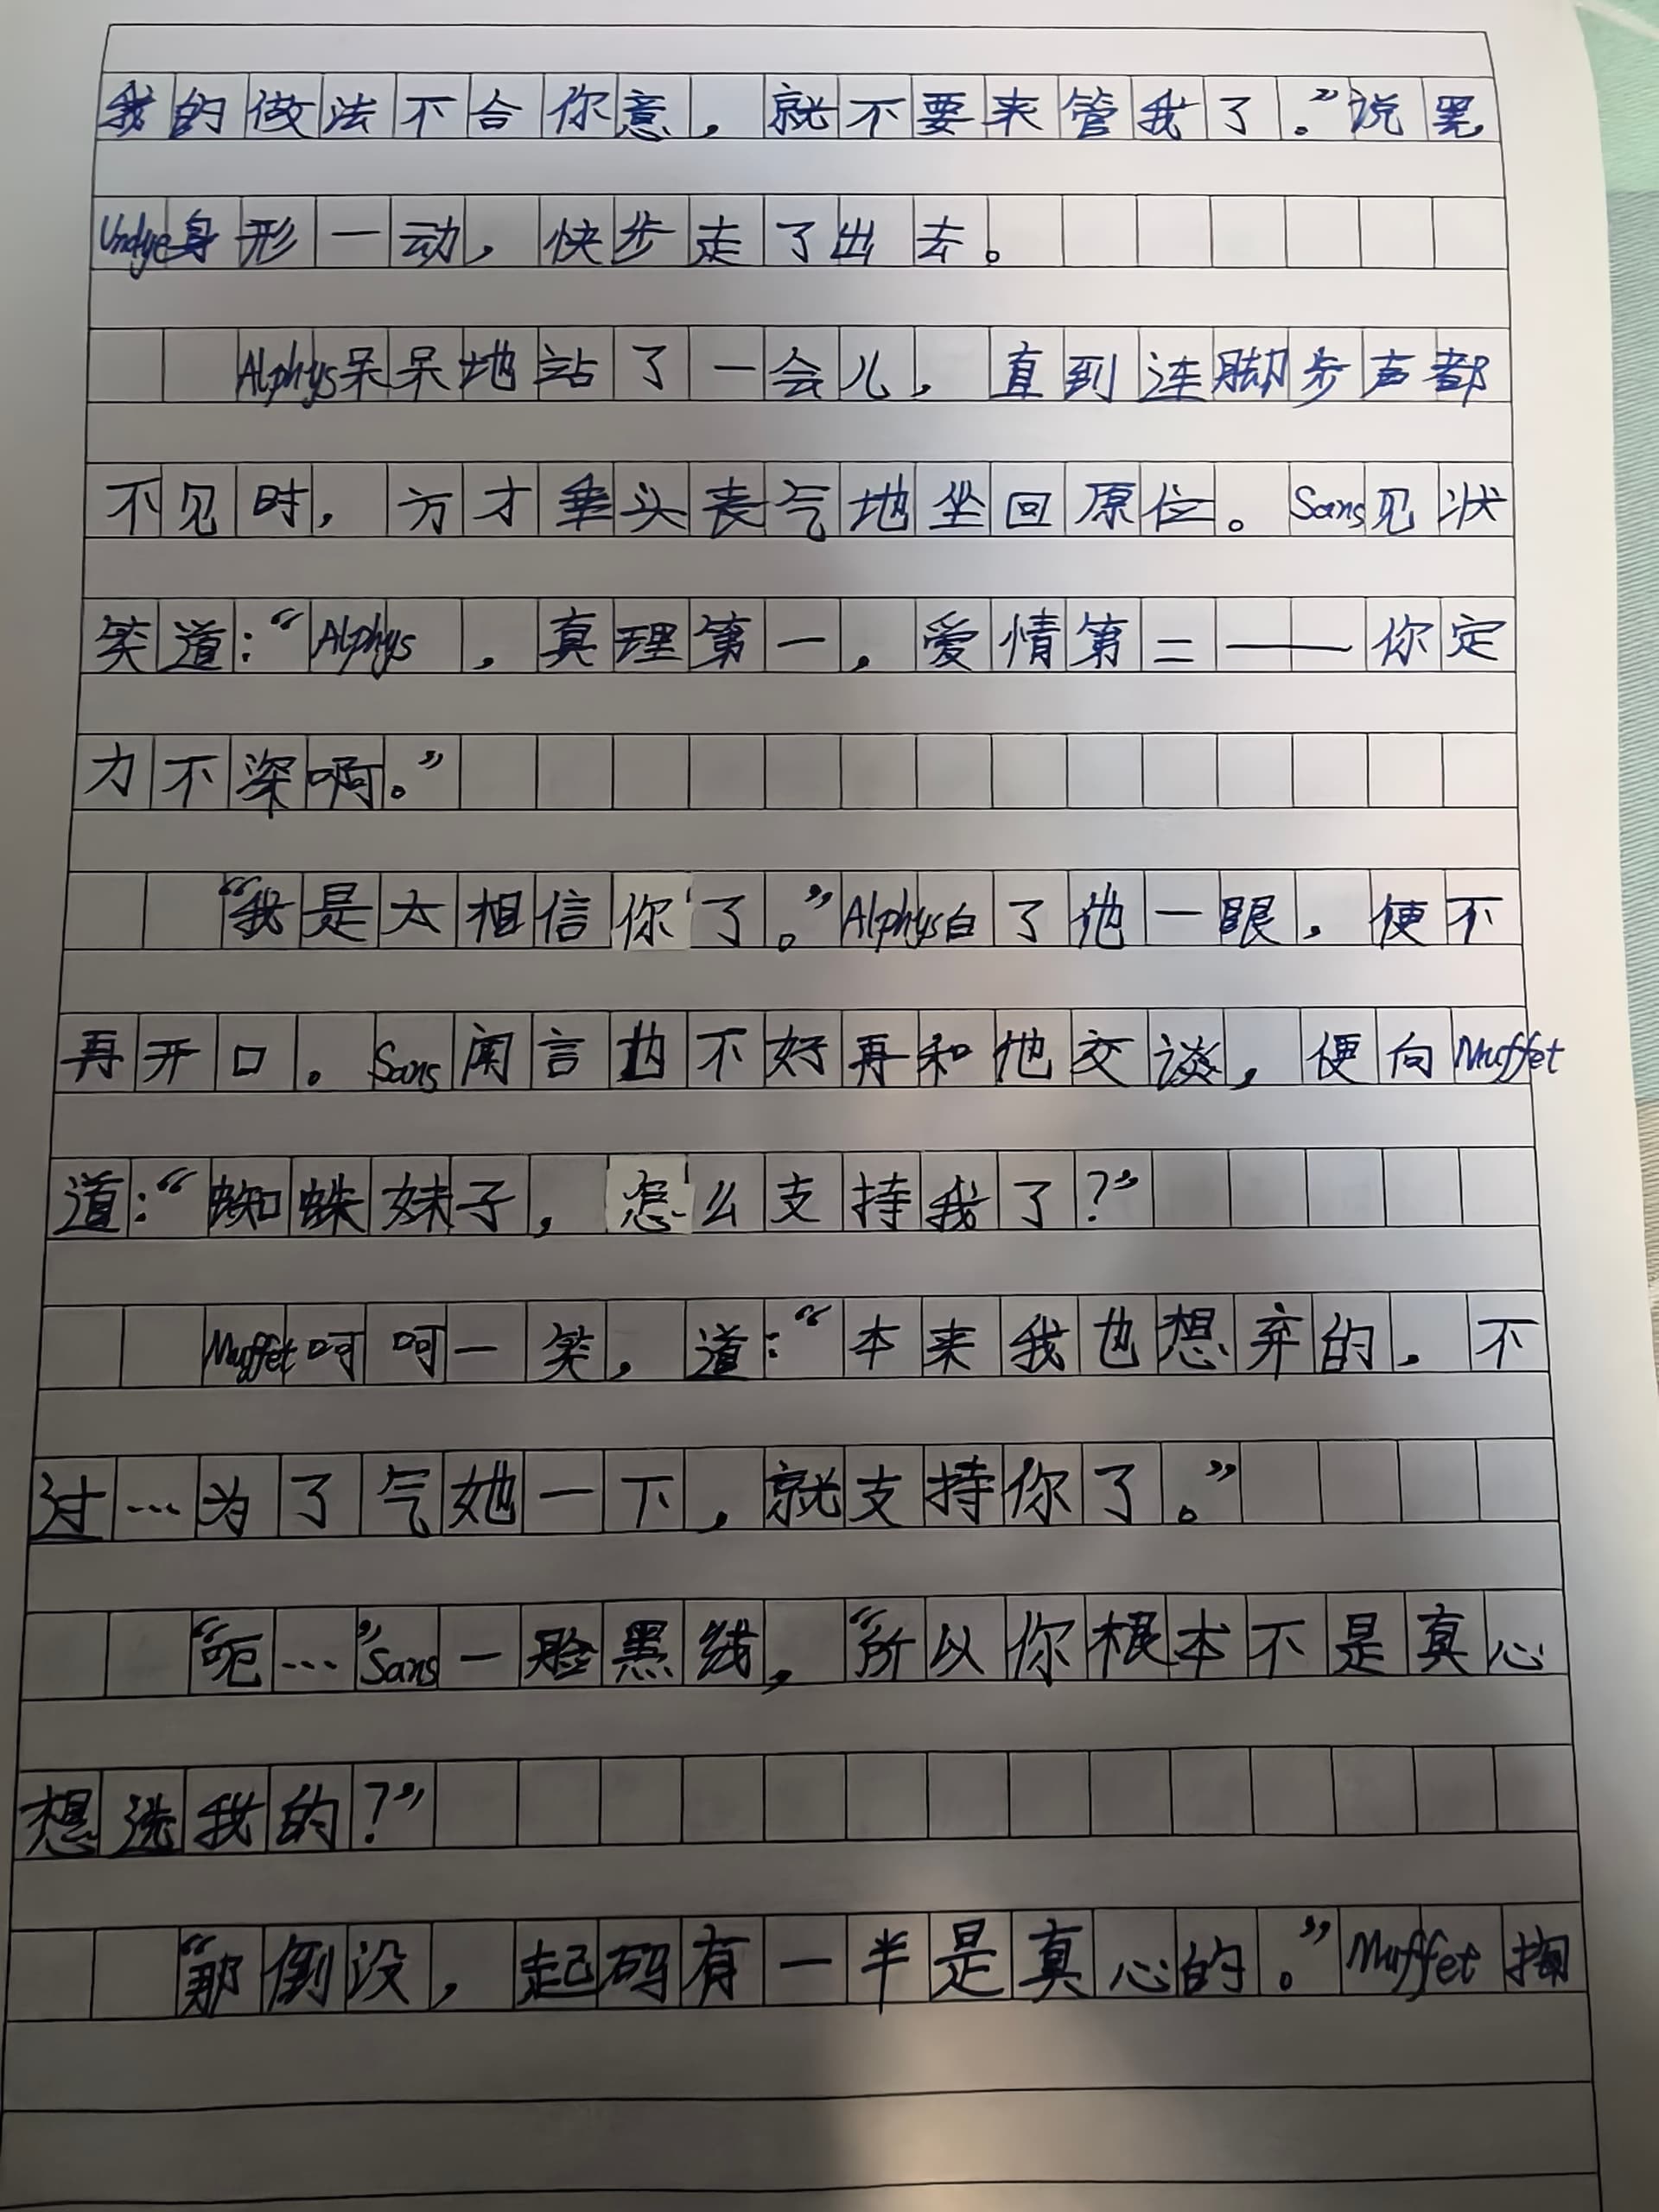 我的做法不合你意，就不要来管我了。”说罢
Undye身形一动，快步走了出去。
Alphys呆呆地站了一会儿，直到连脚步声都
不见时，方才垂头丧气地坐回原位。Sans见状
笑道：“Alphys，真理第一，爱情第二——你定
力不深啊。”
“我是太相信你了。”Alphys白了他一眼，便不
再开口。Sans闻言也不好再和他交谈，便向Muffet
道：“蜘蛛妹子，怎么支持我了？”
Muffet呵呵一笑，道：“本来我也想弃的，不
过…为了气她一下，就支持你了。”
“呃…”Sans一脸黑线，“所以你根本不是真心
想选我的？”
“那倒没，起码有一半是真心的。”Muffet掏